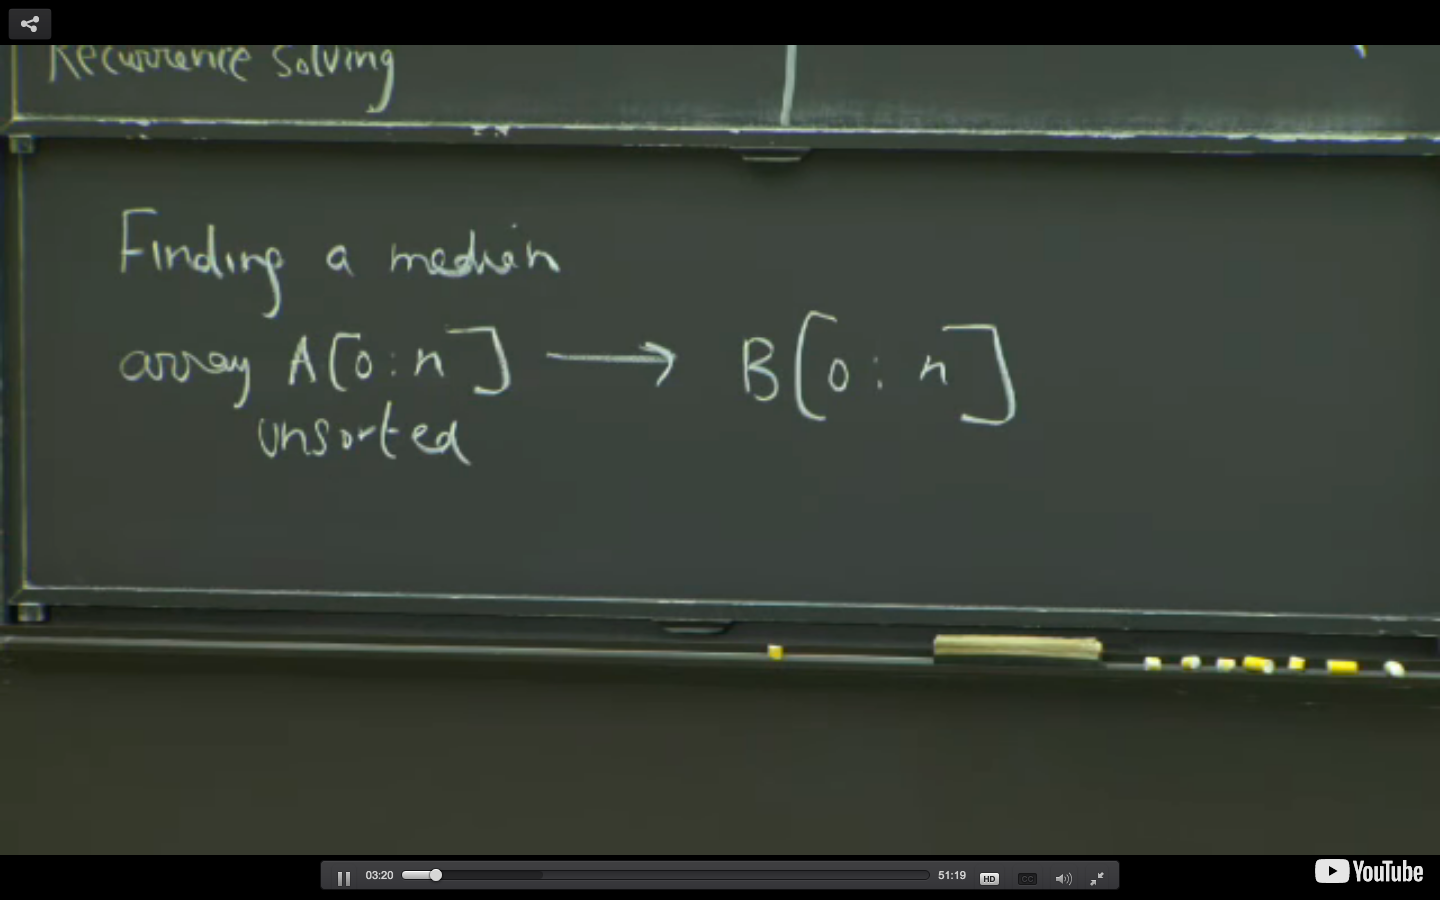 Recurrence Solving
Finding a median
array A[0:n] → B[0:n]
unsorted
03:20
51:19
HD
CC
YouTube